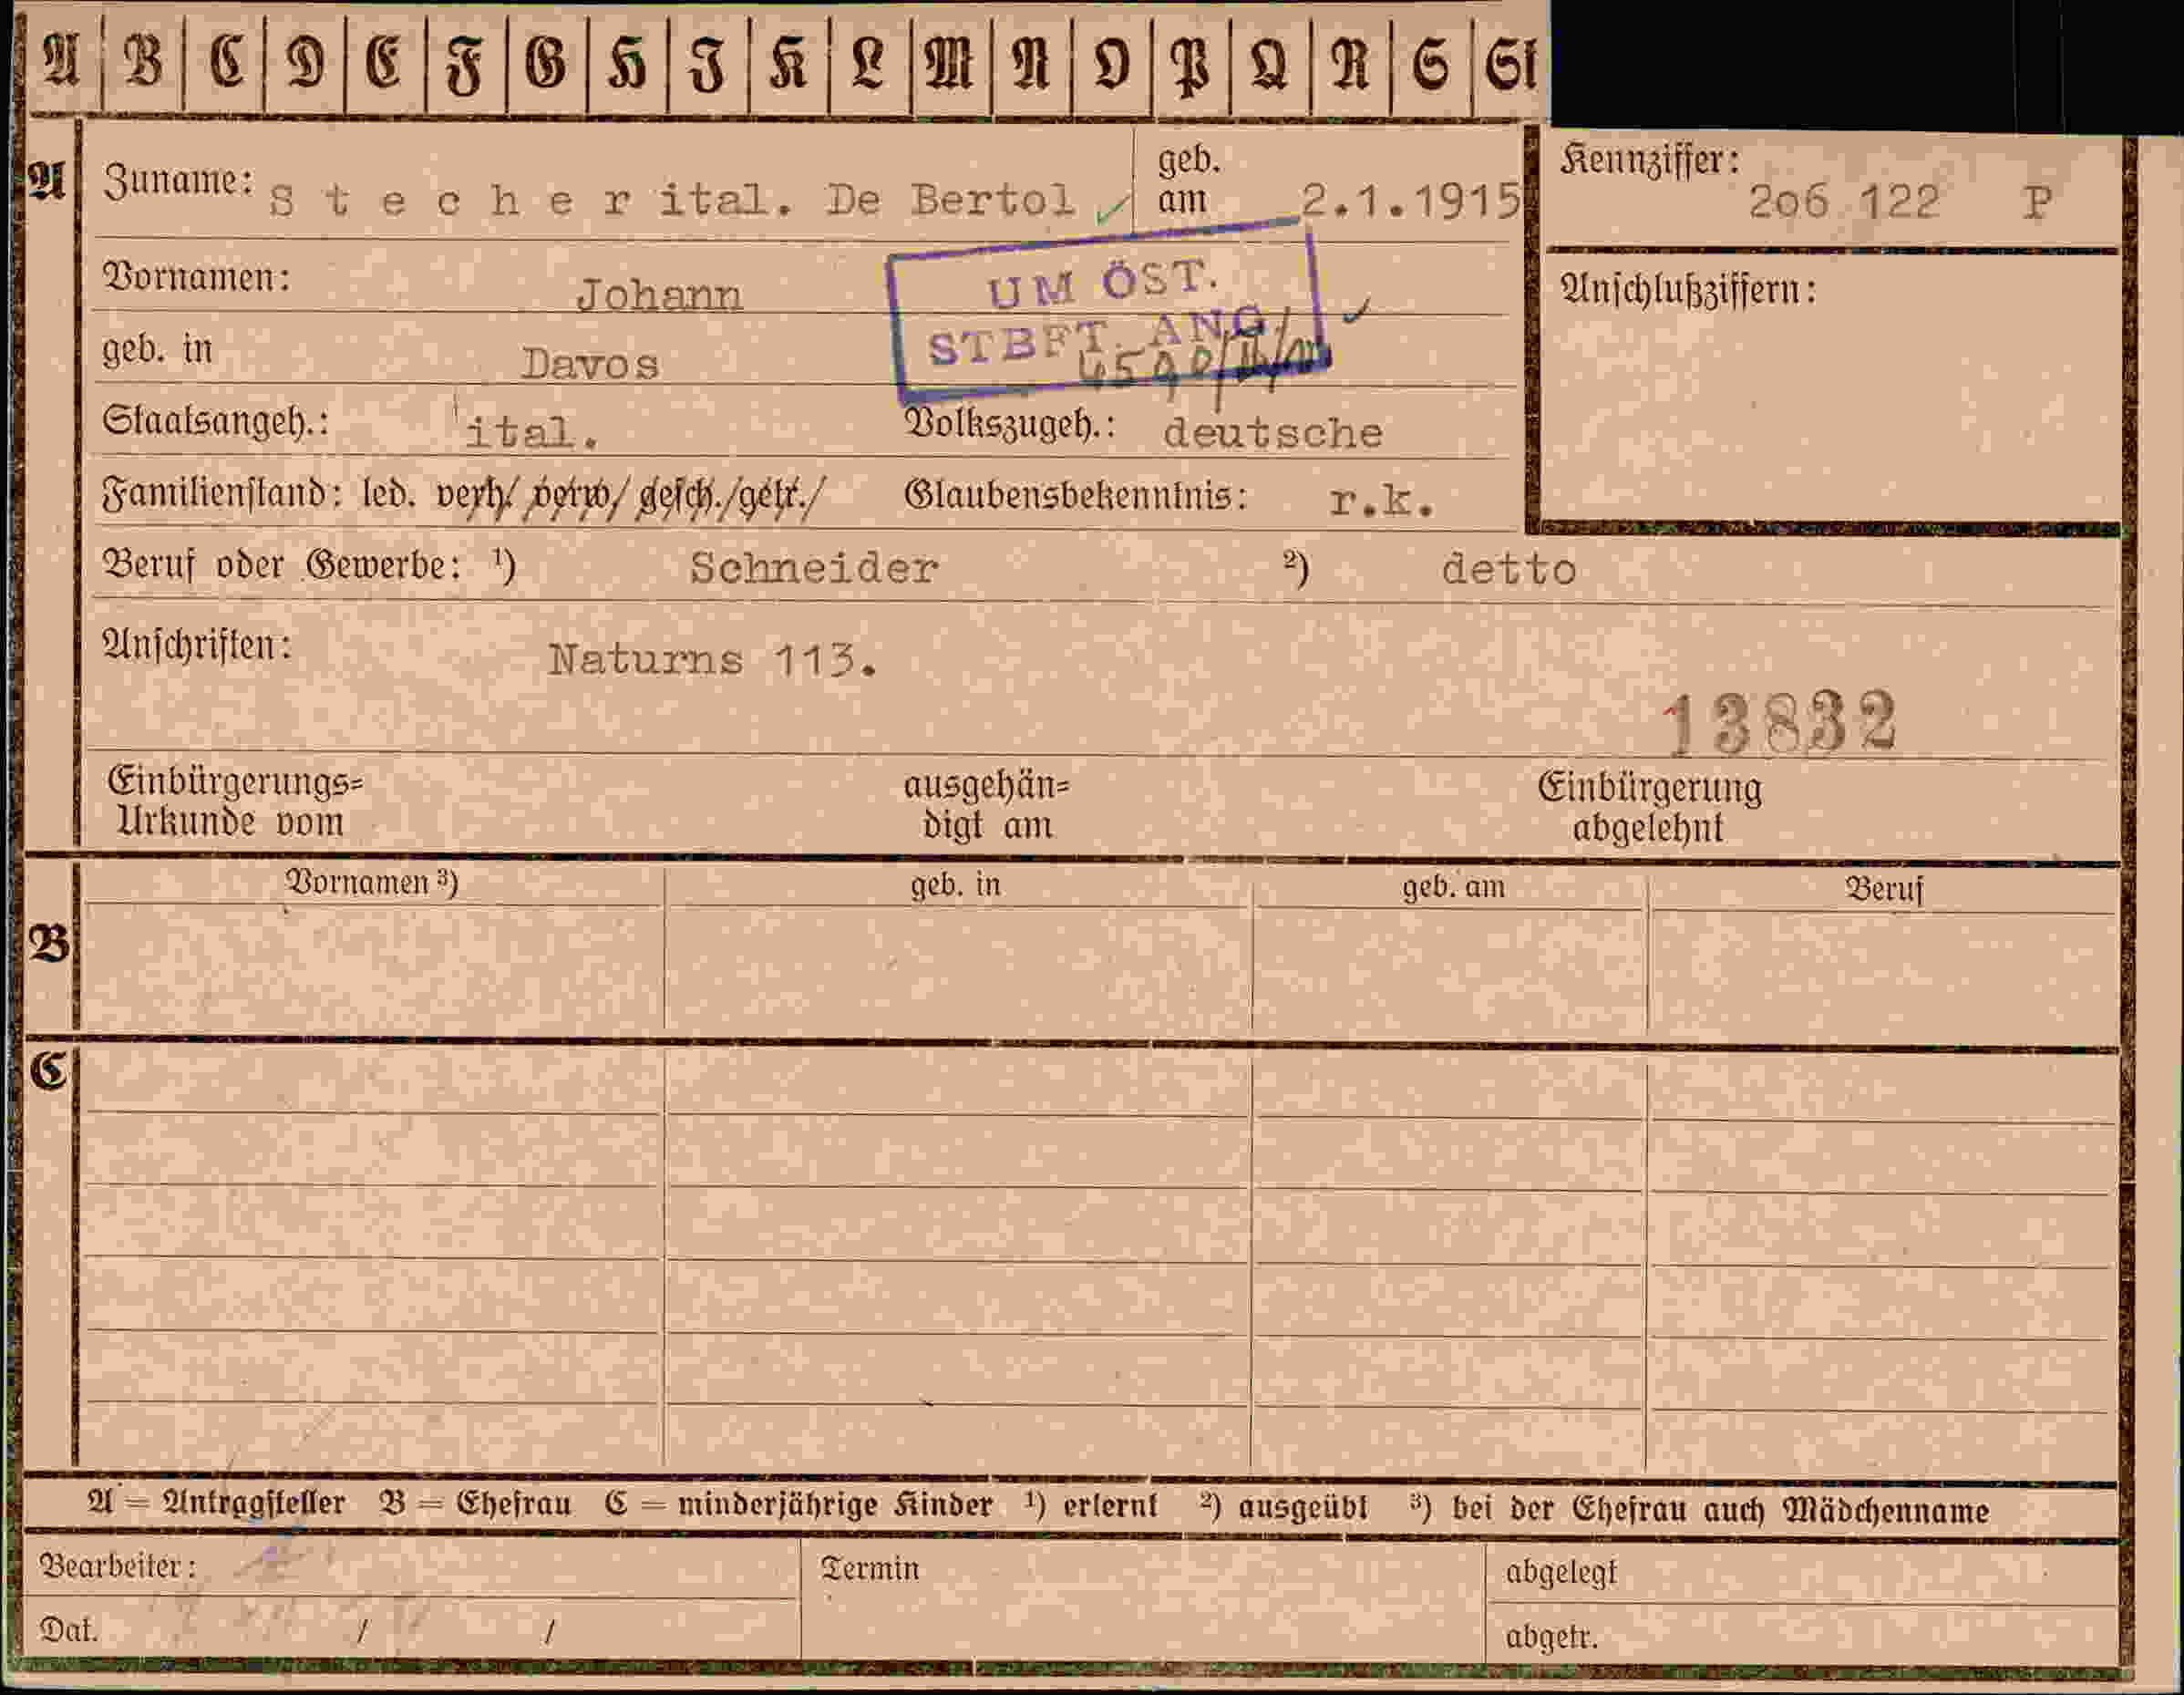 A B C D E F G H I K L M N O P Q R S St
A Zuname: S t e c h e r ital. De Bertol ✓ geb. am 2.1.1915
Kennziffer: 2o6 122 P
Vornamen: Johann
UM ÖST.
STBFT. ANG.
Anschlußziffern:
geb. in Davos
Staatsangeh.: ital. Volkszugeh.: deutsche
Familienstand: led. verh. verw. gesch. getr. Glaubensbekenntnis: r.k.
Beruf oder Gewerbe: ¹) Schneider ²) detto
Anschriften: Naturns 113.
13832
Einbürgerungs=
Urkunde vom
ausgehän=
digt am
Einbürgerung
abgelehnt
B Vornamen ³) geb. in geb. am Beruf
C
A = Antragsteller B = Ehefrau C = minderjährige Kinder ¹) erlernt ²) ausgeübt ³) bei der Ehefrau auch Mädchenname
Bearbeiter: Termin abgelegt
Dat. / / abgetr.